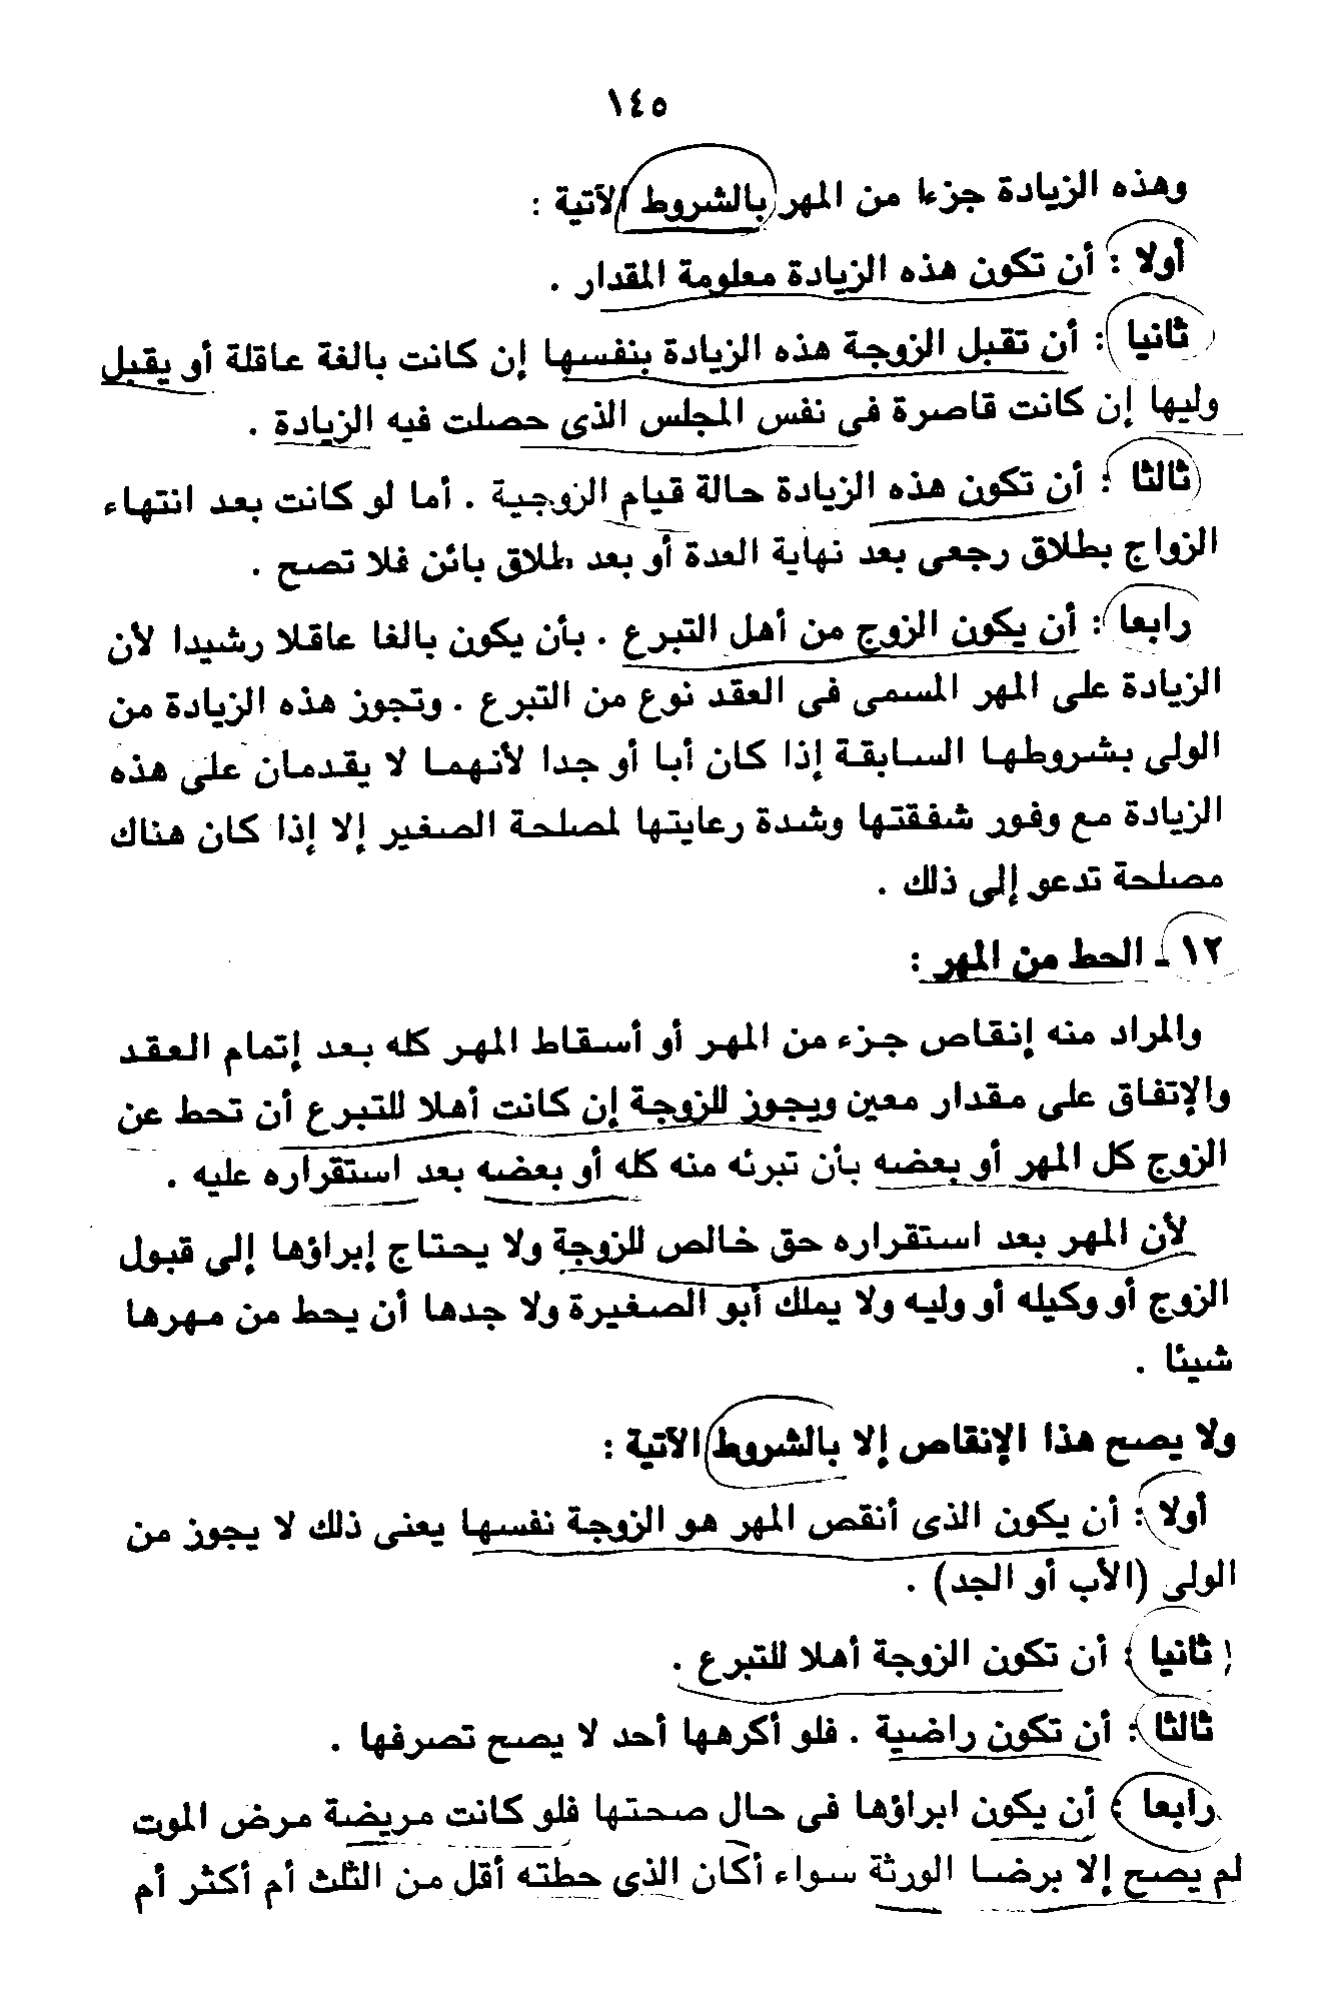 ١٤٥
وهذه الزيادة جزءا من المهر بالشروط الآتية :
أولا : أن تكون هذه الزيادة معلومة المقدار .
ثانيا : أن تقبل الزوجة هذه الزيادة بنفسها إن كانت بالغة عاقلة أو يقبل
وليها إن كانت قاصرة فى نفس المجلس الذى حصلت فيه الزيادة .
ثالثا : أن تكون هذه الزيادة حالة قيام الزوجية . أما لو كانت بعد انتهاء
الزواج بطلاق رجعى بعد نهاية العدة أو بعد طلاق بائن فلا تصح .
رابعا : أن يكون الزوج من أهل التبرع . بأن يكون بالغا عاقلا رشيدا لأن
الزيادة على المهر المسمى فى العقد نوع من التبرع . وتجوز هذه الزيادة من
الولى بشروطها السابقة إذا كان أبا أو جدا لأنهما لا يقدمان على هذه
الزيادة مع وفور شفقتها وشدة رعايتها لمصلحة الصغير إلا إذا كان هناك
مصلحة تدعو إلى ذلك .
١٢ ـ الحط من المهر :
والمراد منه إنقاص جزء من المهر أو أسقاط المهر كله بعد إتمام العقد
والإتفاق على مقدار معين ويجوز للزوجة إن كانت أهلا للتبرع أن تحط عن
الزوج كل المهر أو بعضه بأن تبرئه منه كله أو بعضه بعد استقراره عليه .
لأن المهر بعد استقراره حق خالص للزوجة ولا يحتاج إبراؤها إلى قبول
الزوج أو وكيله أو وليه ولا يملك أبو الصغيرة ولا جدها أن يحط من مهرها
شيئا .
ولا يصح هذا الإنقاص إلا بالشروط الآتية :
أولا : أن يكون الذى أنقص المهر هو الزوجة نفسها يعنى ذلك لا يجوز من
الولى (الأب أو الجد) .
ثانيا : أن تكون الزوجة أهلا للتبرع .
ثالثا : أن تكون راضية . فلو أكرهها أحد لا يصح تصرفها .
رابعا : أن يكون ابراؤها فى حال صحتها فلو كانت مريضة مرض الموت
لم يصح إلا برضا الورثة سواء أكان الذى حطته أقل من الثلث أم أكثر أم